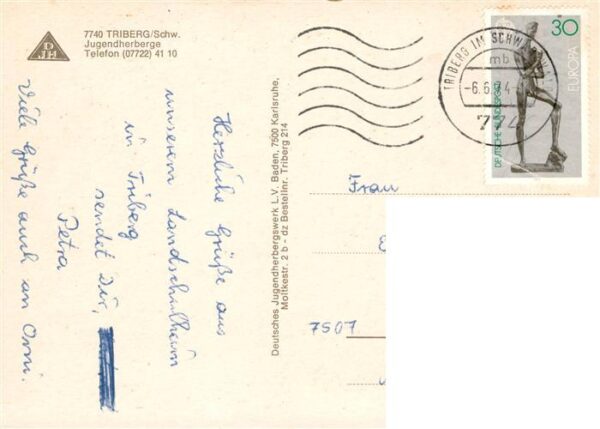 7740 TRIBERG/Schw.
Jugendherberge
Telefon (07722) 41 10
D
JH
Herzliche Grüße aus
unserem Landschulheim
in Triberg
sendet Dir,
Petra
Viele Grüße auch an Omi.
Deutsches Jugendherbergswerk L.V. Baden, 7500 Karlsruhe,
Moltkestr. 2 b - dz Bestellnr. Triberg 214
TRIBERG IM SCHWARZWALD
mb
-6.6.74-
774
30
EUROPA
DEUTSCHE BUNDESPOST
Frau
7507